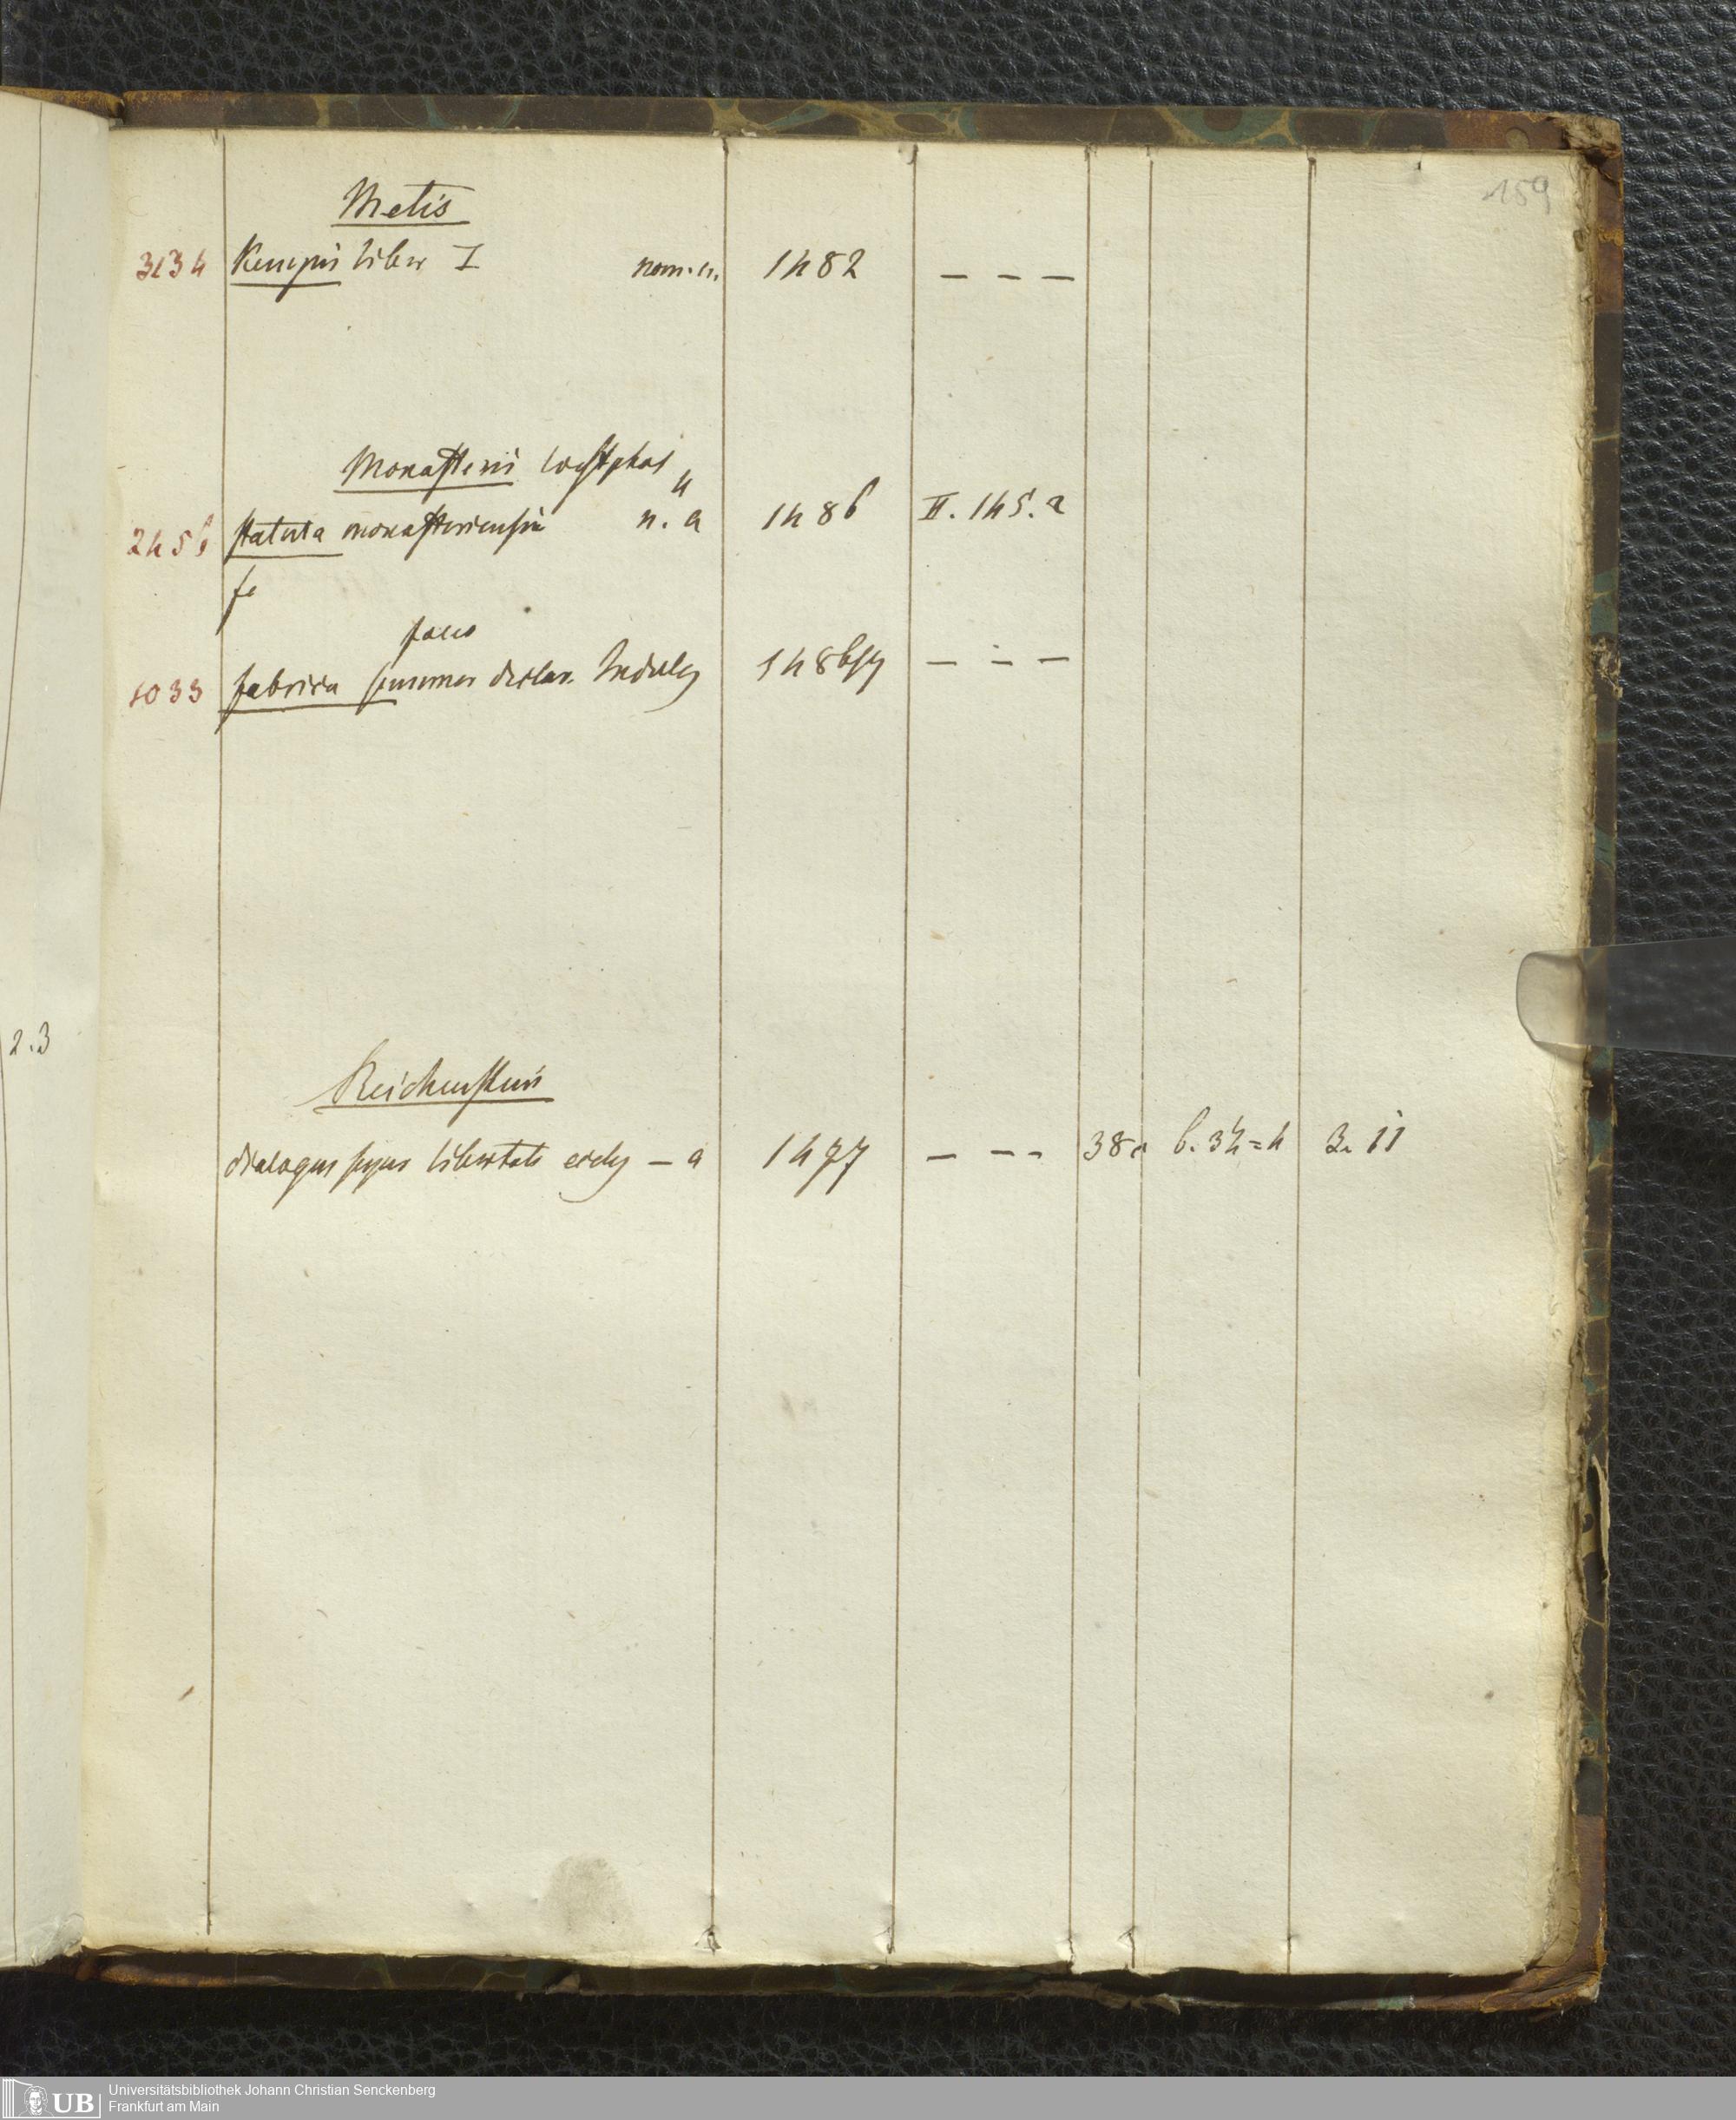 159
Metis
3134 Kempis liber I nom. 1482 – – –
Monasterii westphal
2456 statuta monasteriensia n. a 1486 II. 145. a
fe
1033 fabrica declar. Indulg 1486/7 – – –
2.3
Reichenstein
dialogus super libertate eccles – a 1477 – – – 38 b. 34=4 3. 11
UB
Universitätsbibliothek Johann Christian Senckenberg
Frankfurt am Main